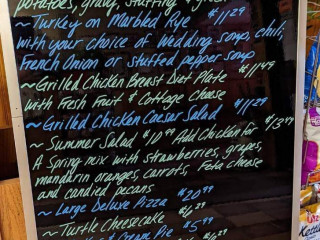 potatoes, gravy, stuffing +
~ Turkey on Marbled Rye $11.29
with your choice of Wedding soup, chili,
French Onion or stuffed pepper soup
~ Grilled Chicken Breast Diet Plate $11.49
with Fresh Fruit & Cottage Cheese
~ Grilled Chicken Caesar Salad $11.29
~ Summer Salad $10.99 Add Chicken for $3.49
A Spring mix with strawberries, grapes,
mandarin oranges, carrots, Feta cheese
and candied pecans
~ Large Deluxe Pizza $20.99
~ Turtle Cheesecake
& Cream Pie $5.99